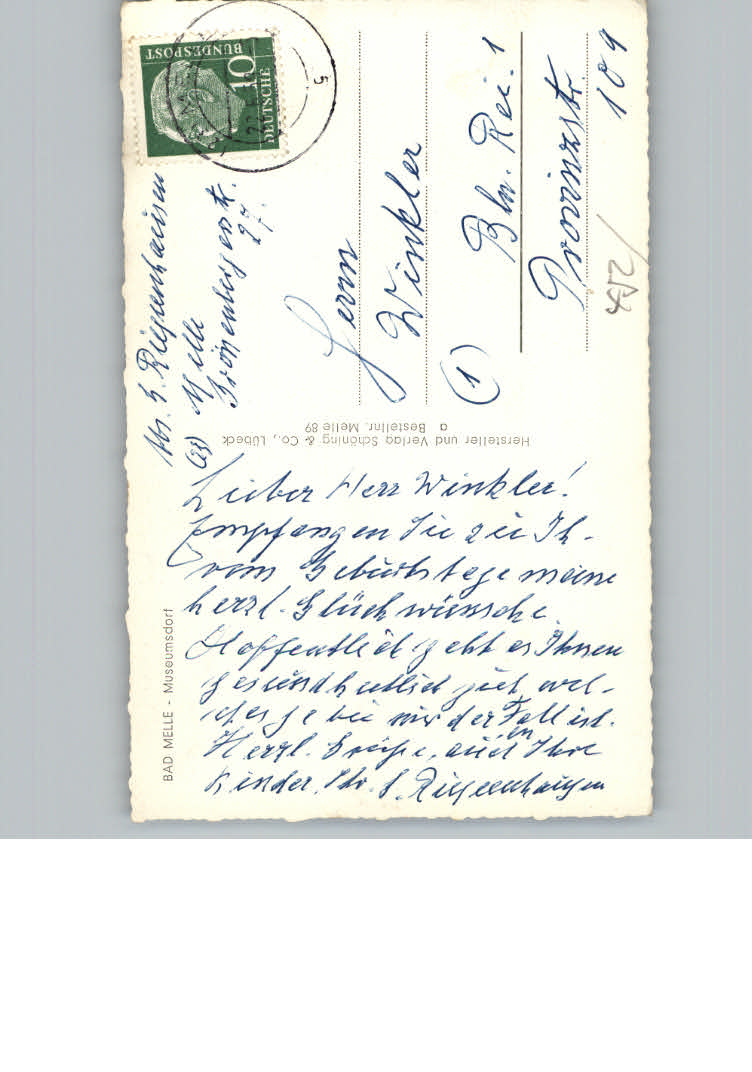 DEUTSCHE
BUNDESPOST
10
5
Abs. G. Riepenhausen
(23) Melle
Grönenbergerstr.
27.
Herrn
Winkler
(1) Bln. Rei. 1
Provinzstr.
109
Hersteller und Verlag Schöning & Co., Lübeck
a Bestellnr. Melle 89
BAD MELLE - Museumsdorf
Lieber Herr Winkler!
Empfangen Sie zu Ih-
rem Geburtstage meine
herzl. Glückwünsche.
Hoffentlich geht es Ihnen
gesundheitlich gut wel-
ches ja bei mir der Fall ist.
Herzl. Grüße, auch Ihre
Kinder, Ihr G. Riepenhausen